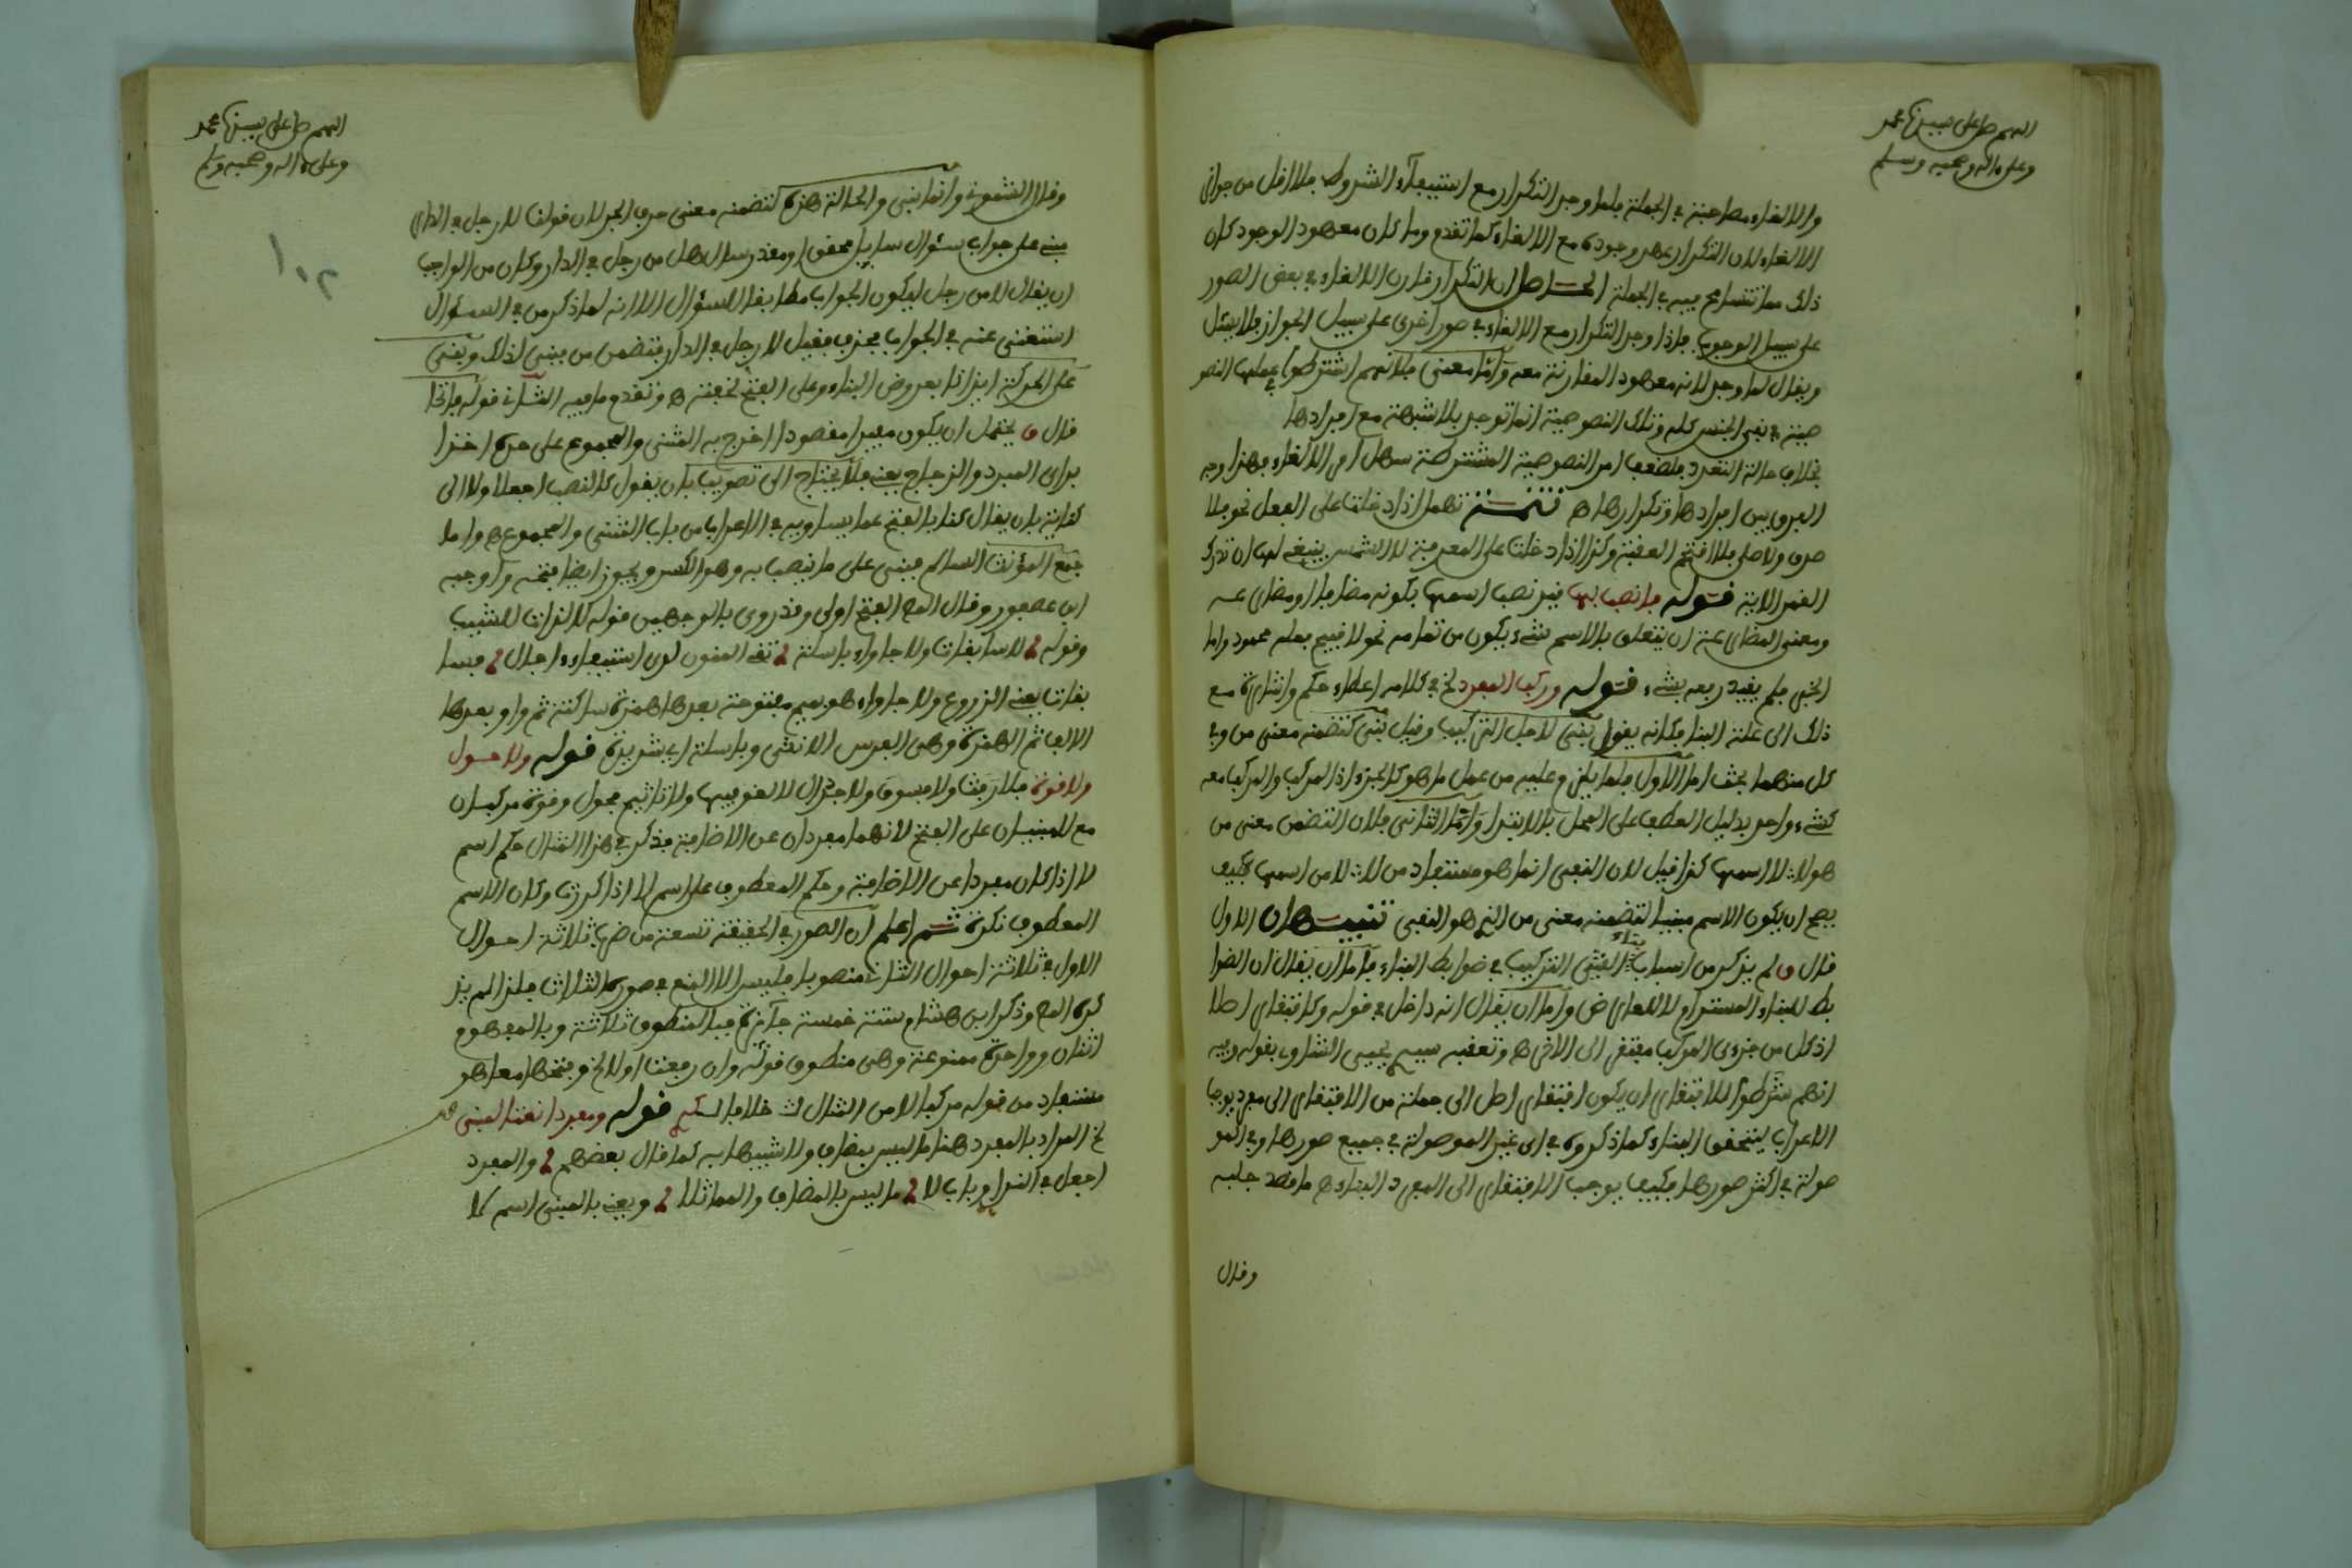 اللهم صل على سيدنا محمد
وعلى ءاله وصحبه وسلم
والالغاء مصاحبة في الجملة فلما وجد التكرار مع استيفاء الشروط فلا اقل من جواز
الالغاء لان التكرار عهد وجوده مع الالغاء كما تقدم وما كان معهود الوجود كان
ذلك مما تتسامح فيه في الجملة الحاصل ان التكرار قارن الالغاء في بعض الصور
على سبيل الوجوب فاذا وجد التكرار مع الالغاء في صور اخرى على سبيل الجواز فلا يسئل
ويقال لما وجد لانه معهود المقارنة معه واما معنى فلانهم اشترطوا في عملها النصو
صية في نفي الجنس كله وتلك النصوصية انما توجد بلا شبهة مع افرادها
بخلاف حالة التعدد فلضعف امر النصوصية المشترطة سهل امر الالغاء فهذا وجه
الفرق بين افرادها وتكرارها اه تتمة تهمل اذا دخلت على الفعل نحو فلا
صدق ولا صلى فلا اقتحم العقبة وكذا اذا دخلت على المعرفة لا الشمس ينبغي لها ان تدرك
القمر الاية قوله فانصب بها قيد نصب اسمها بكونه مضافا او مضارعه
ومعنى المضارعة ان يتعلق بالاسم شيء يكون من تمامه نحو لا قبيح فعله محمود واما
الخبر فلم يقيد رفعه بشيء قوله وركب المفرد لخ في كلامه اعطاء حكم واشارة مع
ذلك الى علة البناء فكانه يقول بني لاجل التركيب وقيل بني لتضمنه معنى من وفي
كل منهما بحث اما الاول فلما يلزم عليه من عمل ما هو كالجزء اذ المركب والمركب معه
كشيء واحد بدليل العطف على المحل بالابتداء واما الثاني فلان التضمن معنى من
هو لا، لا اسمها كذا قيل لان النفي انما هو مستفاد من لا، لا من اسمها فكيف
يصح ان يكون الاسم مبنيا لتضمنه معنى من الذي هو النفي تنبيهان الاول
قال ق لم يذكر من اسباب بناء المبني التركيب في ضوابط البناء فاما ان يقال ان الضوا
بط للبناء المستدام لا للعارض واما ان يقال انه داخل في قوله وكافتقار اصلا
اذ كل من جزءي المركب مفتقر الى الاخر اه وتعقبه سيم يحيى الشاوي بقوله وفيه
انهم شرطوا للافتقار ان يكون افتقار اصل الى جملة من الافتقار الى مفرد يوجب
الاعراب ليتحقق البناء كما ذكروه في اي غير الموصولة في جميع صورها وفي المو
صولة في اكثر صورها فكيف يوجب الافتقار الى المفرد البناء اه ما قصد جلبه
وقال
اللهم صل على سيدنا محمد
وعلى ءاله وصحبه وسلم
١٠٢
وقال الشموني وانما بني والحالة هذه لتضمنه معنى حرف الجر لان قولنا لا رجل في الدار
مبني على جواب سؤال سايل محقق او مقدر سال هل من رجل في الدار وكان من الواجب
ان يقال لا من رجل ليكون الجواب مطابقا للسؤال الا انه لما ذكر من في السؤال
استغني عنه في الجواب فحذف فقيل لا رجل في الدار فتضمن من فبني لذلك وبني
على الحركة ايذانا بعروض البناء وعلى الفتح لخفته اه وتقدم ما فيه الثاني قوله فاتحا
قال ق يحتمل ان يكون مفيدا مقصودا اخرج به المثنى والمجموع على حده اخذا
براي المبرد والزجاج يعني فلا يحتاج الى تصويب بان يقول كالنصب اجعلا ولا الى
كناية بان يقال كنا بالفتح عما يساويه في الاعراب من باب المثنى والمجموع اه واما
جمع المؤنث السالم فبني على ما ينصب به وهو الكسر ويجوز ايضا فتحه واوجبه
ابن عصفور وقال المص الفتح اولى وقد روي بالوجهين قوله لا لذات للشيب
وقوله لا سابغات ولا جاواء باسلة تقي المنون لدى استيفاء اجال فسا
بغات يعني الدروع ولا جاواء هو بجيم مفتوحة بعدها همزة ساكنة ثم واو بعدها
الالف ثم الهمزة وهي الفرس الانثى وباسلة اي شديدة قوله ولا حول
ولا قوة فلا رفث ولا فسوق ولا جدال لا لغو فيها ولا تاثيم فحول وقوة مركبان
مع لا مبنيان على الفتح لانهما مفردان عن الاضافة فذكر في هذا المثال حكم اسم
لا اذا كان مفردا عن الاضافة وحكم المعطوف على اسم لا اذا كررت وكان الاسم
المعطوف نكرة ثم اعلم ان الصور في الحقيقة تسعة من ضرب ثلاثة احوال
الاول في ثلاثة احوال الثاني منصوبا فليس الا المنع في صوره الثلاث فلذا لم يذ
كره المص وذكر ابن هشام ستة خمسة جائزة فبالمنطوق ثلاثة وبالمفهوم
اثنان وواحدة ممنوعة وهي منطوق قوله وان رفعت اولا لخ وفتحهما معا هو
مستفاد من قوله مركبا لا من المثال قوله ومفردا نعتا لمبني
لخ المراد بالمفرد هنا ما ليس بمضاف ولا شبيها به كما قال بعضهم والمفرد
اجعل في الندا وباب لا ما ليس بالمضاف والمماثلا ويعني بالمبني اسم لا